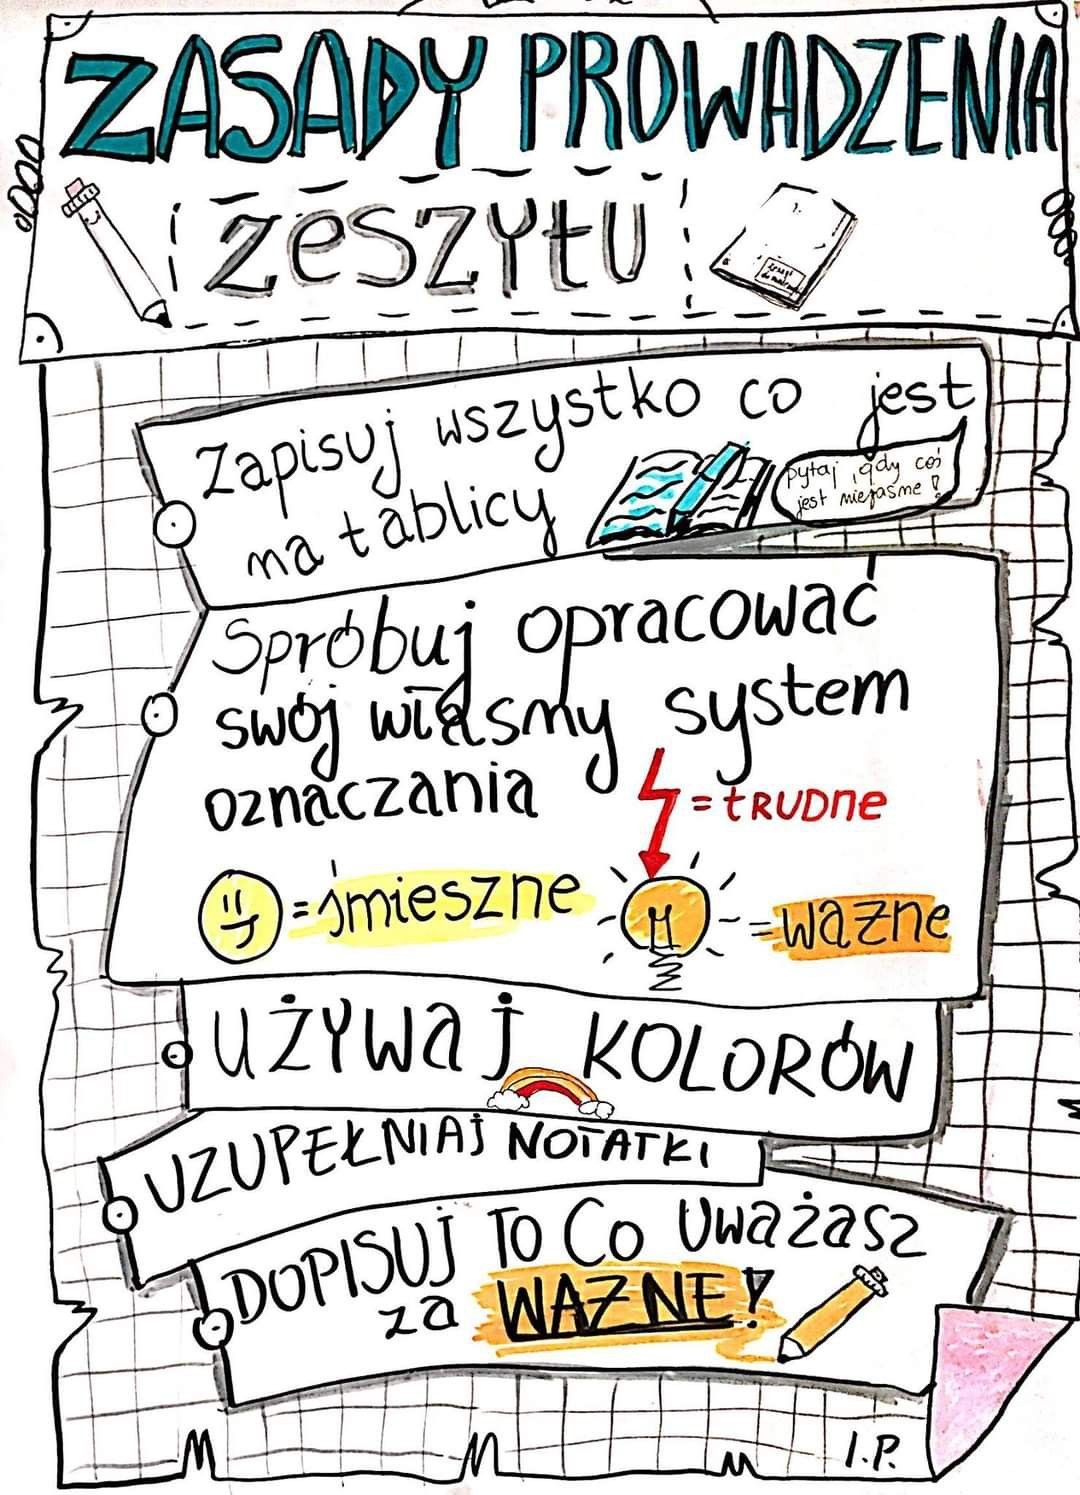 ZASADY PROWADZENIA
ZESZYTU
Zapisuj wszystko co jest
na tablicy
pytaj, gdy coś
jest niejasne!
Spróbuj opracować
swój własny system
oznaczania
= tRUDNE
= śmieszne
= ważne
UŻYWAJ KOLORÓW
UZUPEŁNIAJ NOTATKI
DOPISUJ TO CO UWAŻASZ
za WAŻNE!
I.P.